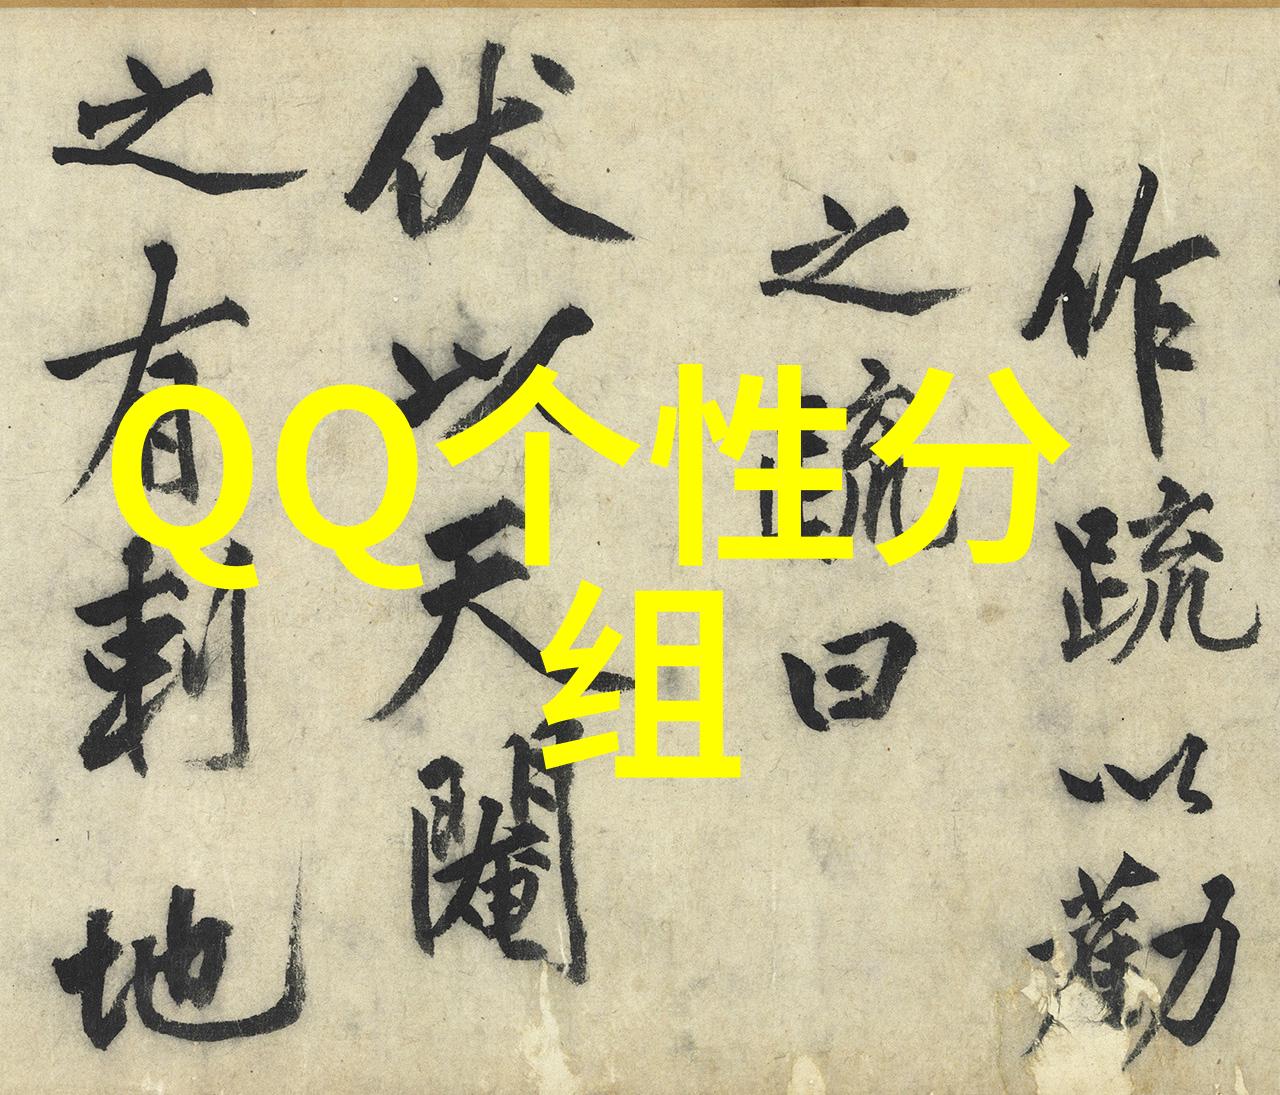 QQ个性分
组
作疏以勸
之疏曰
伏以天閹
之有刺地